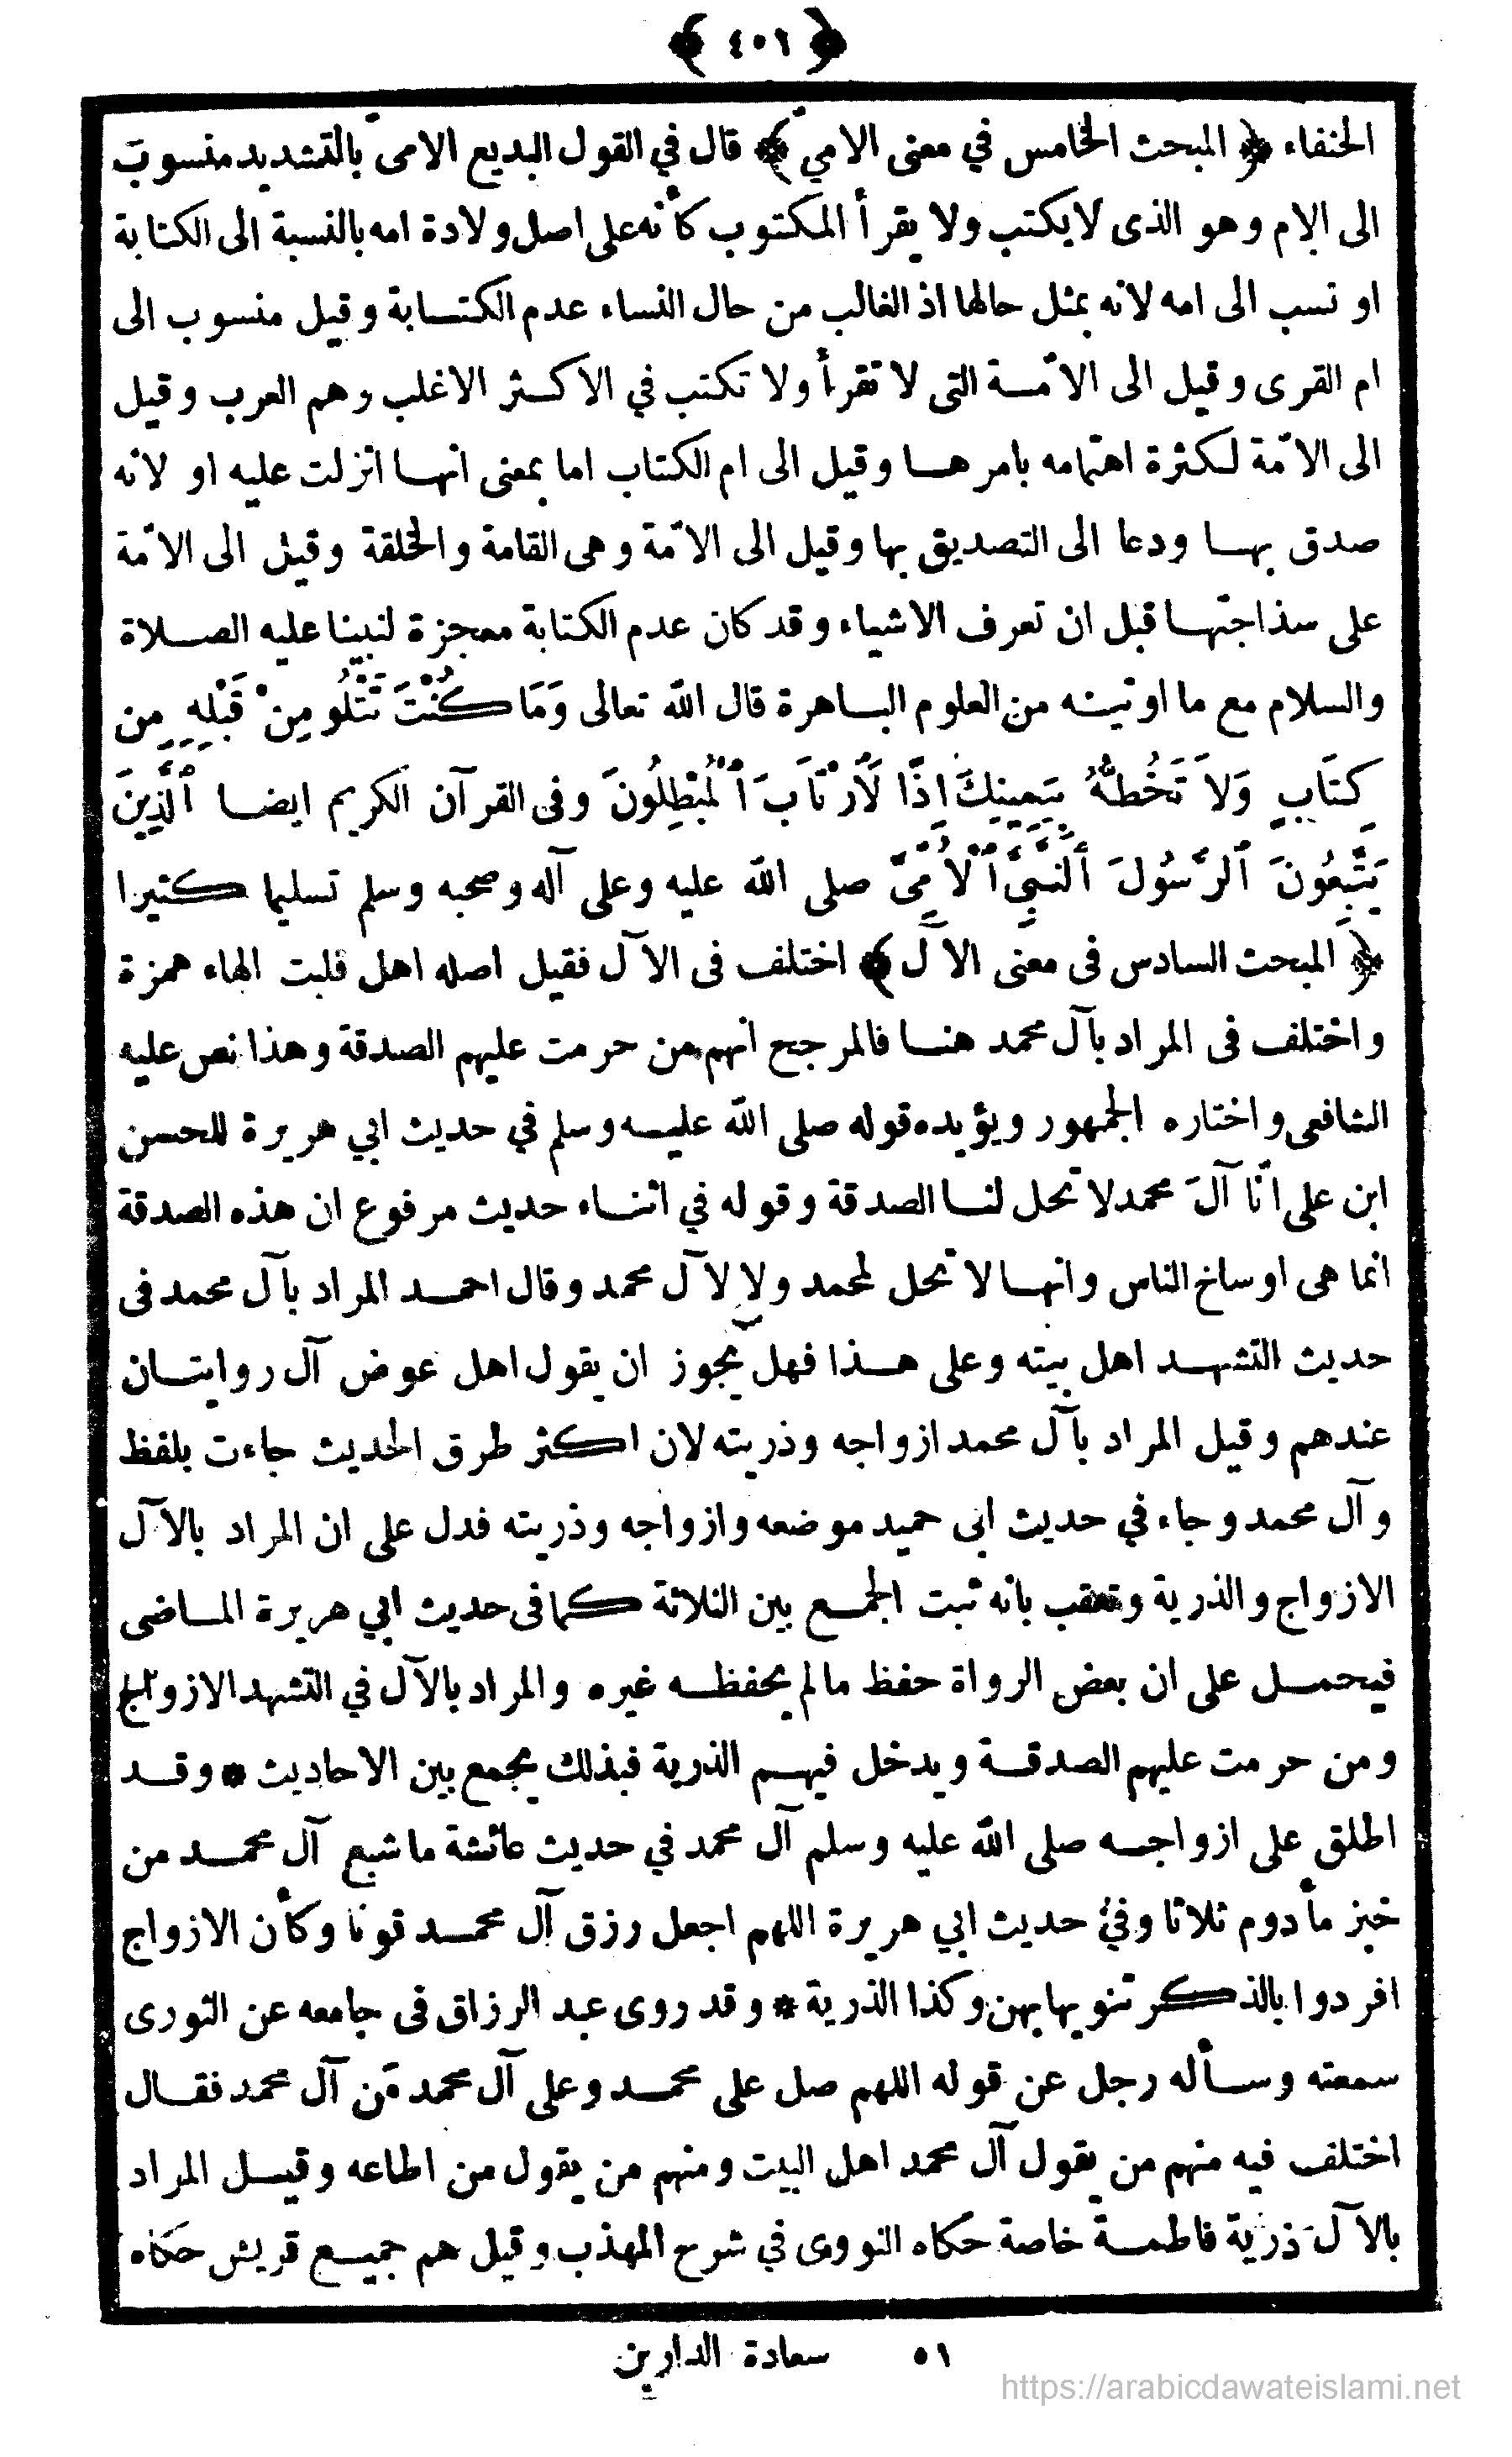 ﴿ ٤٠١ ﴾
الخنفاء ﴿ المبحث الخامس في معنى الامي ﴾ قال في القول البديع الامى بالتشديد منسوب
الى الام وهو الذى لا يكتب ولا يقرأ المكتوب كأنه على اصل ولادة امه بالنسبة الى الكتابة
او نسب الى امه لانه بمثل حالها اذ الغالب من حال النساء عدم الكتابة وقيل منسوب الى
ام القرى وقيل الى الامّة التى لا تقرأ ولا تكتب في الاكثر الاغلب وهم العرب وقيل
الى الامّة لكثرة اهتمامه بامرها وقيل الى ام الكتاب اما بمعنى انها انزلت عليه او لانه
صدق بها ودعا الى التصديق بها وقيل الى الامّة وهى القامة والخلقة وقيل الى الامّة
على سذاجتها قبل ان تعرف الاشياء وقد كان عدم الكتابة معجزة لنبينا عليه الصلاة
والسلام مع ما اوتيته من العلوم الباهرة قال الله تعالى وَمَا كُنْتَ تَتْلُو مِنْ قَبْلِهِ مِن
كِتَابٍ وَلاَ تَخُطُّهُ بِيَمِينِكَ إِذًا لَارْتَابَ ٱلْمُبْطِلُونَ وفى القرآن الكريم ايضا ٱلَّذِينَ
يَتَّبِعُونَ ٱلرَّسُولَ ٱلنَّبِيَّ ٱلْأُمِّيَّ صلى الله عليه وعلى آله وصحبه وسلم تسليما كثيرا
﴿ المبحث السادس فى معنى الآل ﴾ اختلف فى الآل فقيل اصله اهل قلبت الهاء همزة
واختلف فى المراد بآل محمد هنا فالمرجح انهم من حرمت عليهم الصدقة وهذا نص عليه
الشافعى واختاره الجمهور ويؤيده قوله صلى الله عليه وسلم في حديث ابي هريرة للحسن
ابن على انّا آلَ محمد لا تحل لنا الصدقة وقوله في اثناء حديث مرفوع ان هذه الصدقة
انما هى اوساخ الناس وانها لا تحل لمحمد ولا لآل محمد وقال احمد المراد بآل محمد فى
حديث التشهد اهل بيته وعلى هذا فهل يجوز ان يقول اهل عوض آل روايتان
عندهم وقيل المراد بآل محمد ازواجه وذريته لان اكثر طرق الحديث جاءت بلفظ
وآل محمد وجاء في حديث ابى حميد موضعه وازواجه وذريته فدل على ان المراد بالآل
الازواج والذرية وتعقب بانه ثبت الجمع بين الثلاثة كما فى حديث ابي هريرة الماضى
فيحمل على ان بعض الرواة حفظ ما لم يحفظه غيره والمراد بالآل في التشهد الازواج
ومن حرمت عليهم الصدقة ويدخل فيهم الذرية فبذلك يجمع بين الاحاديث * وقد
اطلق على ازواجه صلى الله عليه وسلم آل محمد في حديث عائشة ما شبع آل محمد من
خبز مأدوم ثلاثا وفي حديث ابي هريرة اللهم اجعل رزق آل محمد قوتا وكأن الازواج
افردوا بالذكر تنويها بهن وكذا الذرية * وقد روى عبد الرزاق فى جامعه عن الثورى
سمعته وسأله رجل عن قوله اللهم صل على محمد وعلى آل محمد مَن آل محمد فقال
اختلف فيه منهم من يقول آل محمد اهل البيت ومنهم من يقول من اطاعه وقيل المراد
بالآل ذرية فاطمة خاصة حكاه النووى في شرح المهذب وقيل هم جميع قريش حكاه
٥١ سعادة الدارين
https://arabicdawateislami.net